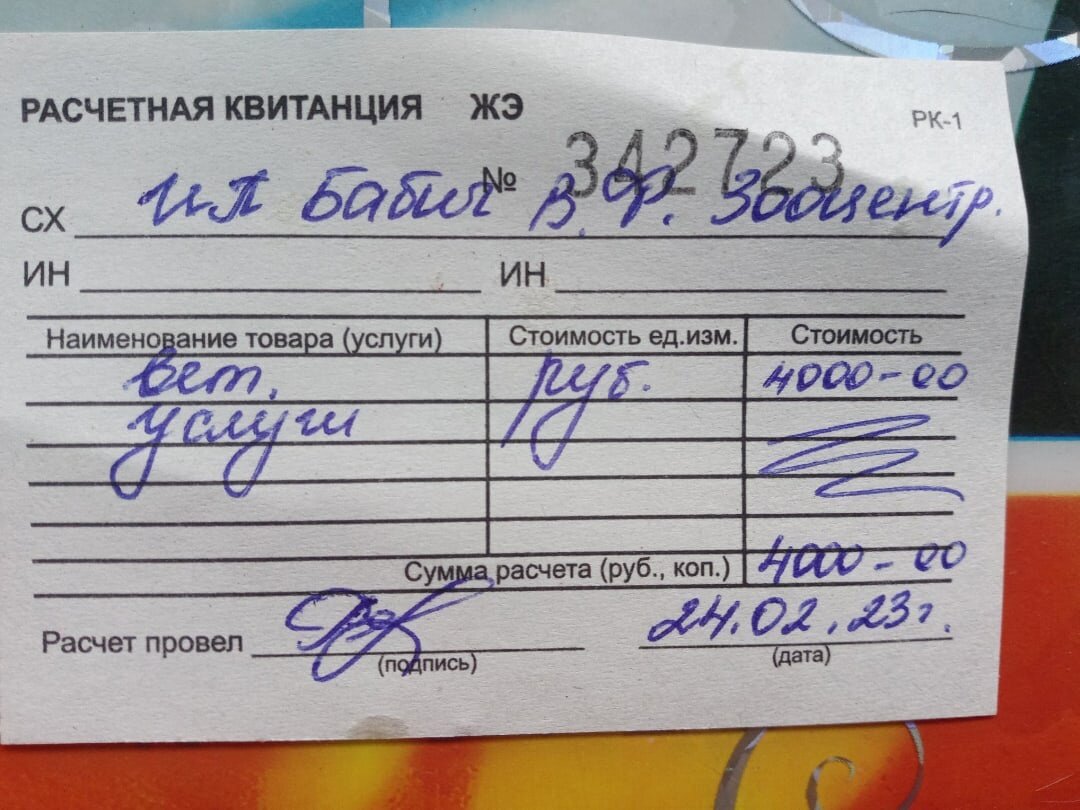 РАСЧЕТНАЯ КВИТАНЦИЯ ЖЭ
РК-1
№ 342723
СХ ИП Бабич В.Ф. Зооцентр.
ИН ИН
Наименование товара (услуги) Стоимость ед.изм. Стоимость
вет. руб. 4000-00
услуги
Сумма расчета (руб., коп.) 4000-00
Расчет провел 24.02.23г.
(подпись) (дата)